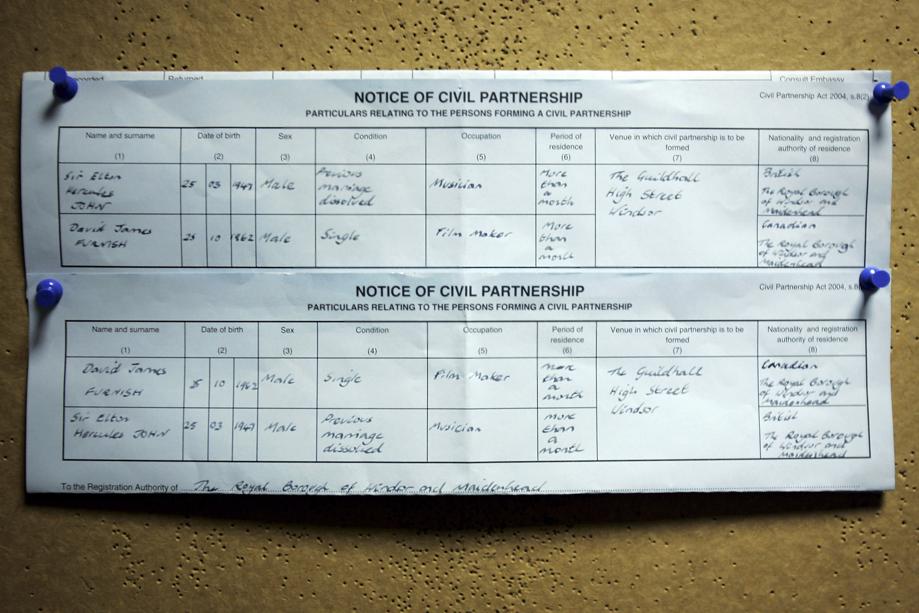 Recorded Returned Consult Embassy
NOTICE OF CIVIL PARTNERSHIP
Civil Partnership Act 2004, s.8(2)
PARTICULARS RELATING TO THE PERSONS FORMING A CIVIL PARTNERSHIP
Name and surname Date of birth Sex Condition Occupation Period of residence Venue in which civil partnership is to be formed Nationality and registration authority of residence
(1) (2) (3) (4) (5) (6) (7) (8)
Sir Elton Hercules JOHN 25 03 1947 Male Previous marriage dissolved Musician More than a month The Guildhall High Street Windsor British The Royal Borough of Windsor and Maidenhead
David James FURNISH 25 10 1962 Male Single Film Maker More than a month Canadian The Royal Borough of Windsor and Maidenhead
NOTICE OF CIVIL PARTNERSHIP
Civil Partnership Act 2004, s.8
PARTICULARS RELATING TO THE PERSONS FORMING A CIVIL PARTNERSHIP
Name and surname Date of birth Sex Condition Occupation Period of residence Venue in which civil partnership is to be formed Nationality and registration authority of residence
(1) (2) (3) (4) (5) (6) (7) (8)
David James FURNISH 10 1962 Male Single Film Maker more than a month The Guildhall High Street Windsor Canadian The Royal Borough of Windsor and Maidenhead
Sir Elton Hercules JOHN 25 03 1947 Male Previous marriage dissolved Musician more than a month British The Royal Borough of Windsor and Maidenhead
To the Registration Authority of The Royal Borough of Windsor and Maidenhead